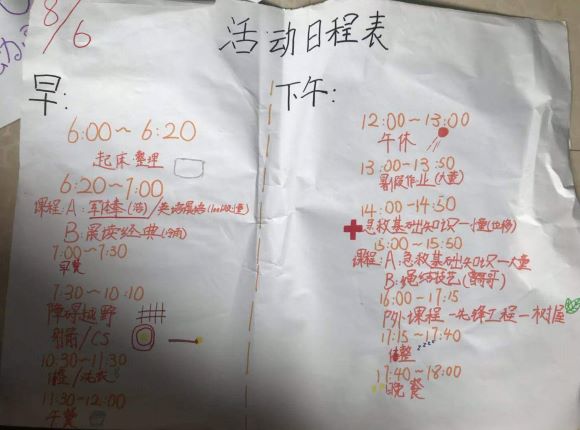 8/6
活动日程表
早:
6:00~6:20
起床整理
6:20~7:00
课程:A:军棒
B:晨读经典
7:00~7:30
早餐
7:30~10:10
障碍越野
射箭/CS
10:30~11:30
11:30~12:00
午餐
下午:
12:00~13:00
午休
13:00~13:50
暑假作业(大童)
14:00-14:50
急救基础知识一小童
15:00~15:50
课程:A.急救基础知识一大童
B:绳结技艺
16:00~17:15
户外课程一先锋工程一树屋
17:15~17:40
休整
17:40~18:00
晚餐